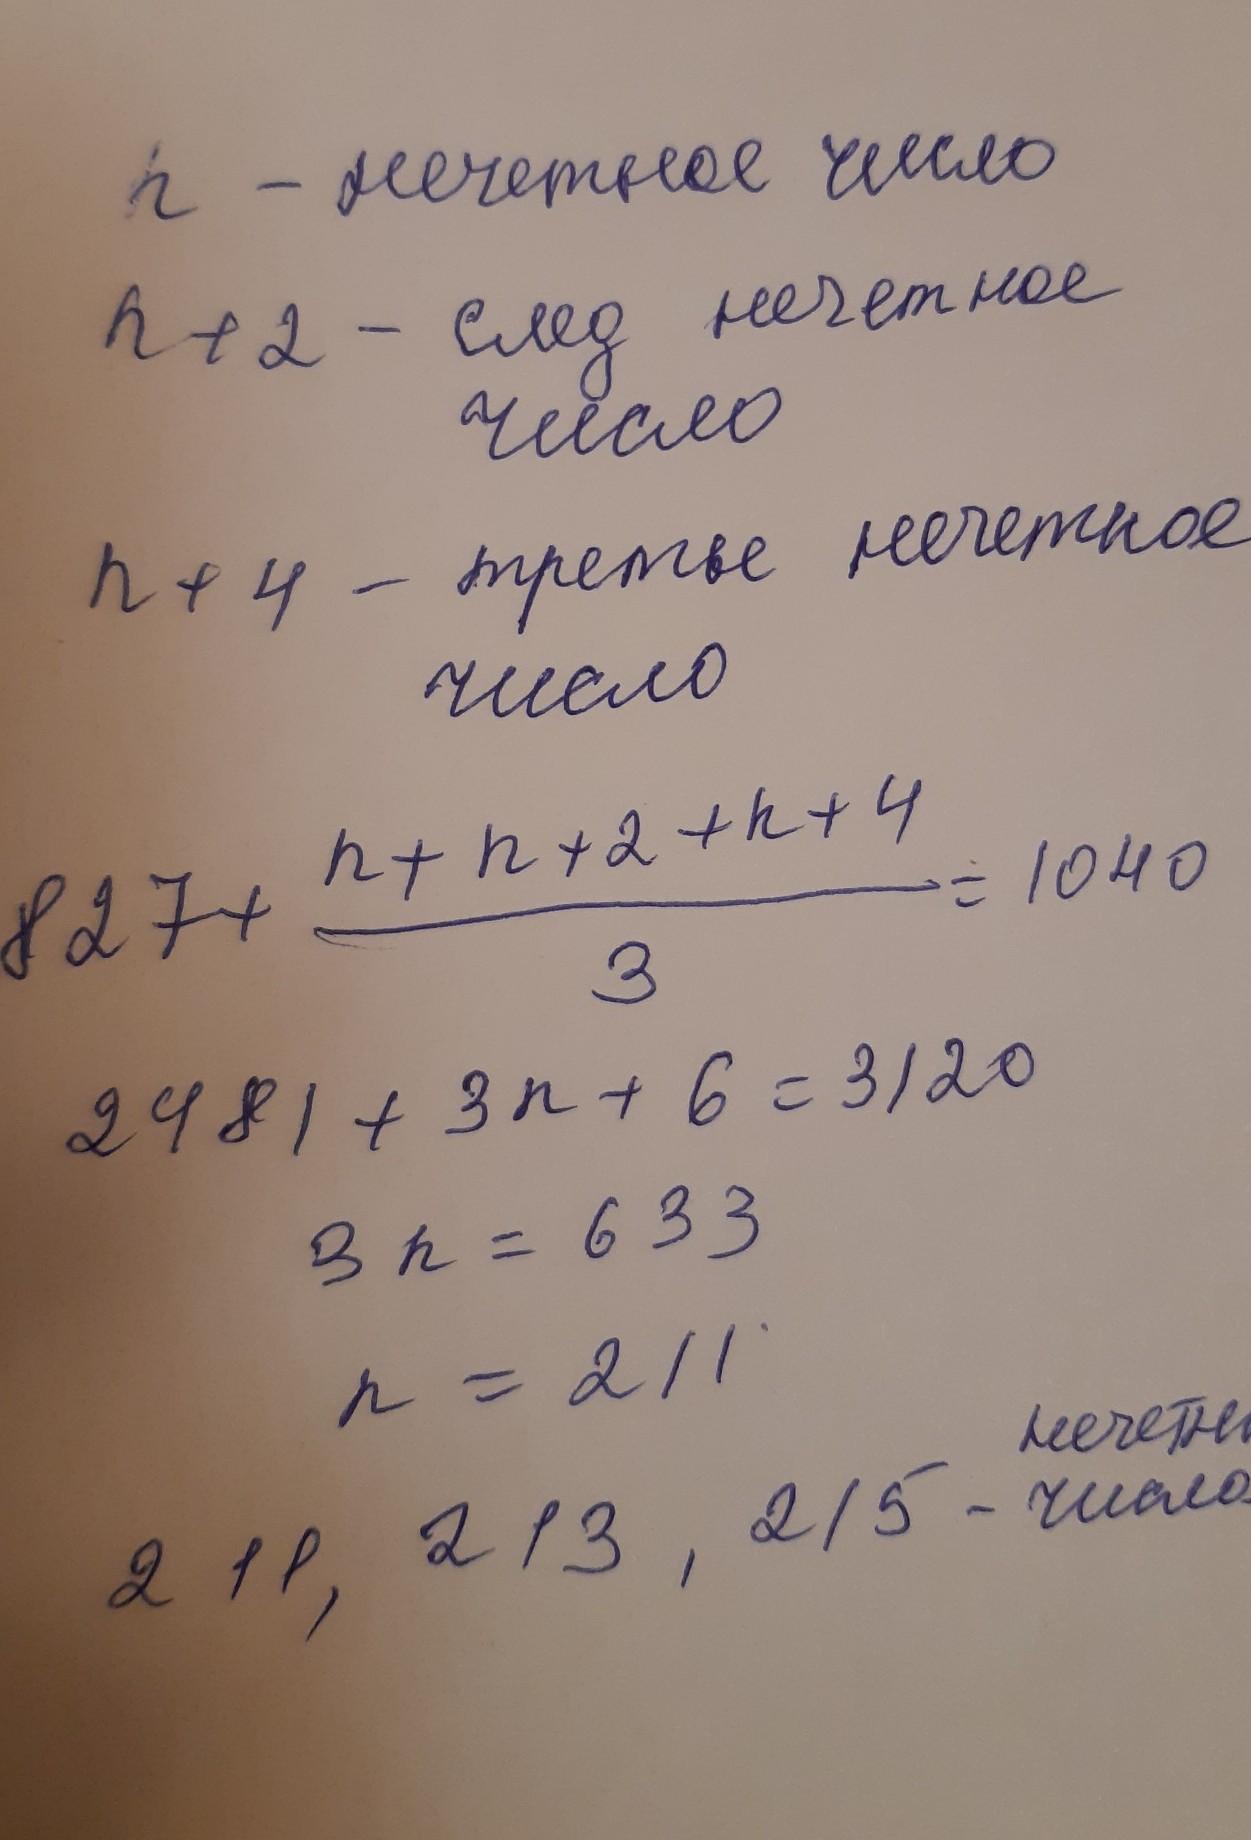 n – нечетное число
n+2 – след нечетное
число
n+4 – третье нечетное
число
827+ (n+n+2+n+4)/3 = 1040
2481 + 3n + 6 = 3120
3n = 633
n = 211
нечетн
211, 213, 215 – число